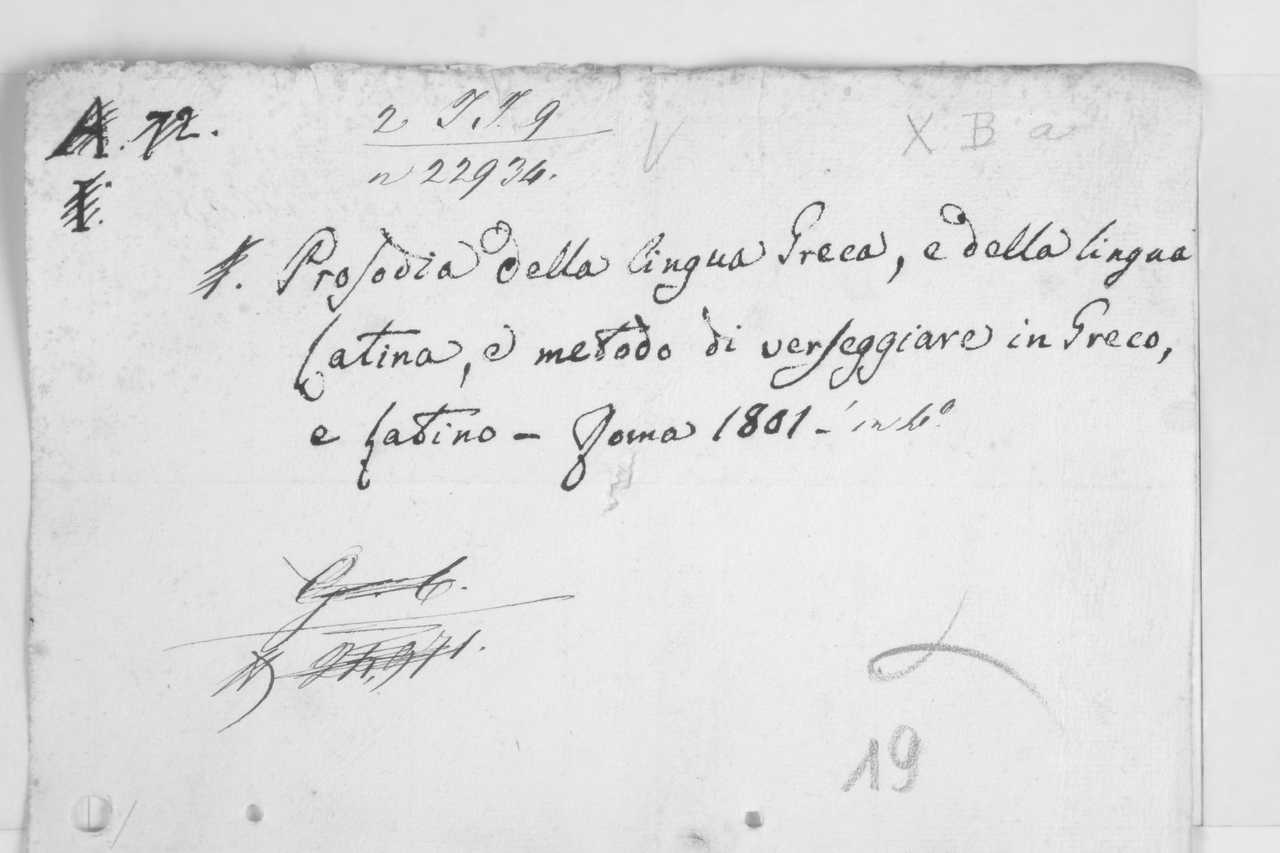 A. 72.
2 J J. 9
V
X B a
n 22934.
I.
Prosodia della lingua Greca, e della lingua
Latina, e metodo di verseggiare in Greco,
e Latino - Roma 1801 - in 4º
19